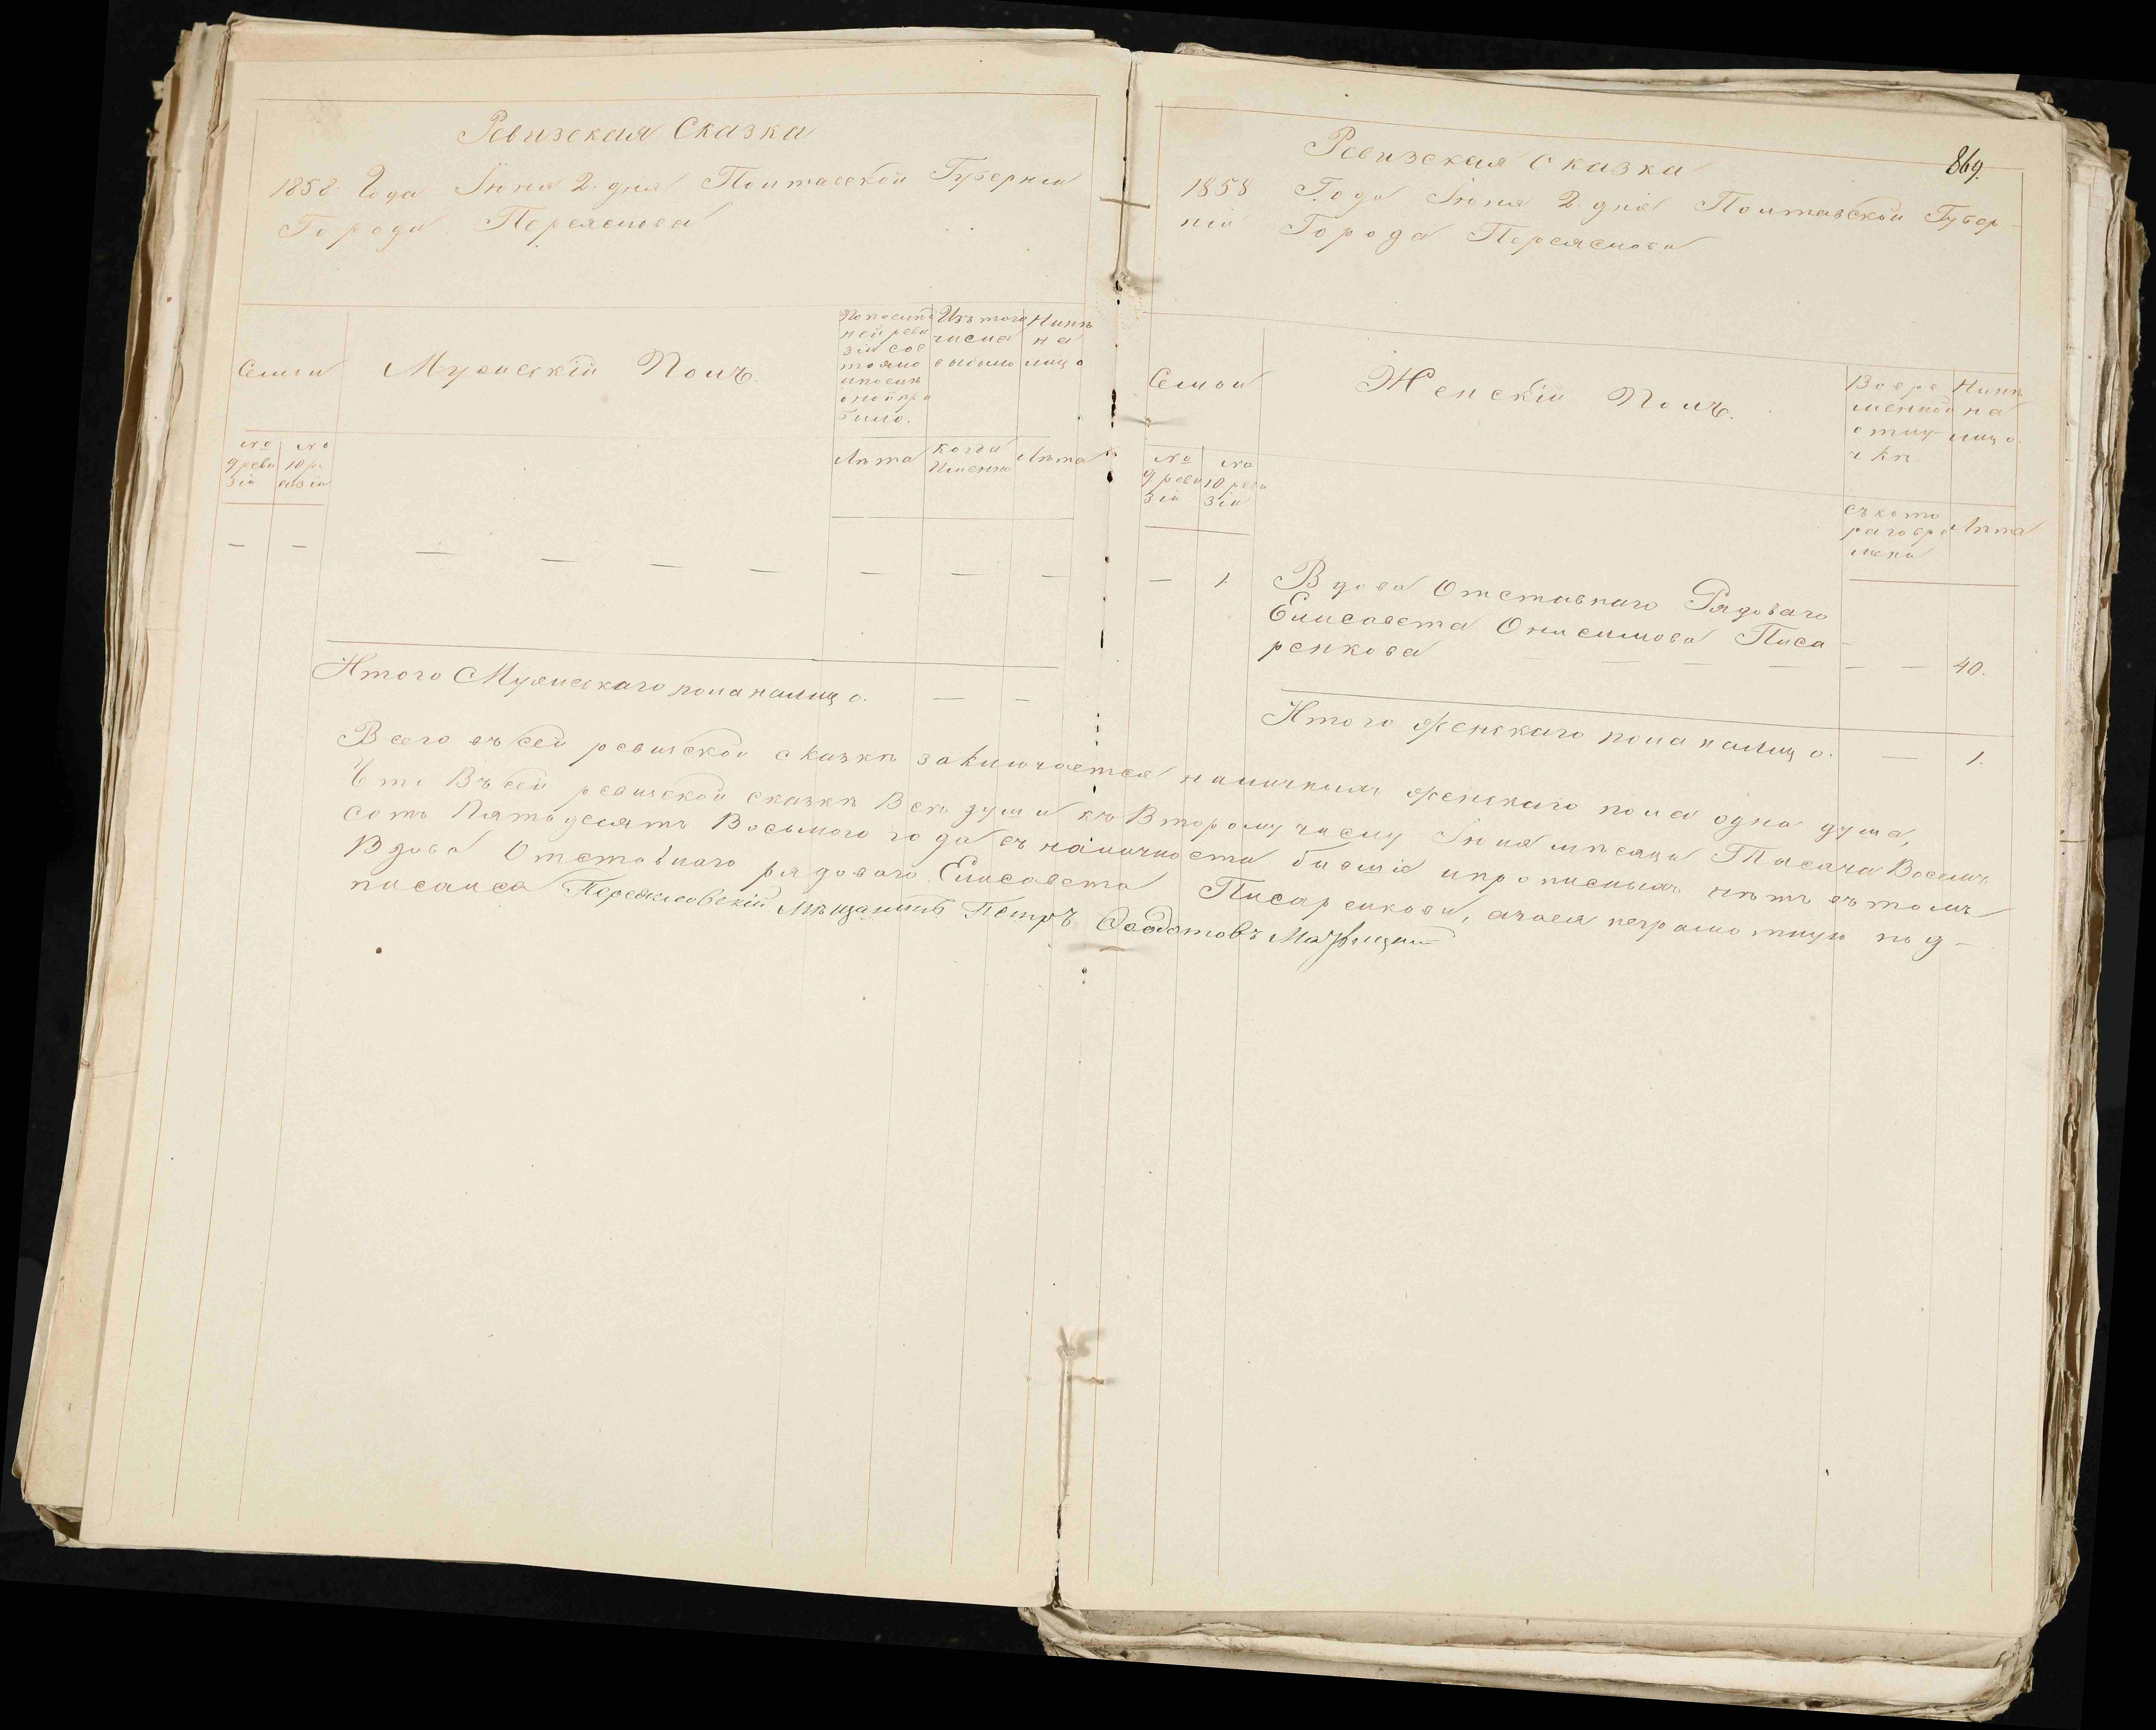 Ревизская Сказка
1858. Года Іюня 2. дня Полтавской Губерніи
Города Переяслова
Семьи
Мужескій Полъ.
По послѣд
ней реви
зіи сос
тояло
и послѣ
оной при
было.
Изъ того
числа
выбыло
Нынѣ
на
лицо
№ 9 реви зіи
№ 10 ре визіи
Лѣта
Когда Именно
Лѣта
— — — — — — — — —
Итого Мужескаго пола на лицо. — —
869.
Ревизская Сказка
1858 Года Іюня 2. дня Полтавской Губер-
ніи Города Переяслова
Семьи
Женскій Полъ.
Во вре
менной
отлу-
чкѣ.
Нынѣ
на
лицо.
№ 9 реви зіи
№ 10 реви зіи
Съ кото
раго вре
мени
Лѣта
— 1. Вдова Отставнаго Рядоваго
Елисавета Онисимова Писа-
ренкова — — — — — 40.
Итого женскаго пола на лицо. — 1.
Всего въ сей ревизской сказкѣ заключается наличныхъ женскаго пола одна душа,
Что Въ сей ревизской сказкѣ Всѣ души къ Второму числу Іюня мѣсяца Тысяча Восемь
сотъ Пятьдесятъ Восьмого года въ наличности бывшіе и прописныхъ нѣтъ въ томъ
Вдова Отставнаго рядоваго Елисавета Писаренкова, а за ея неграмотную под-
писался Переяславскій Мѣщанинъ Петръ Феодотовъ